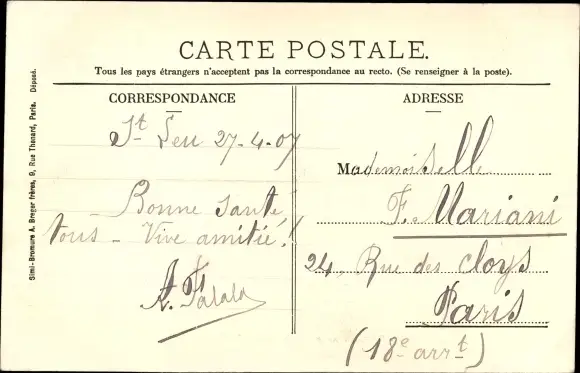 CARTE POSTALE.
Tous les pays étrangers n'acceptent pas la correspondance au recto. (Se renseigner à la poste).
CORRESPONDANCE
St Leu 27-4-07
Bonne santé
tous - Vive amitié!
A. Falala
ADRESSE
Mademoiselle
F. Mariani
24, Rue des Cloys
Paris
(18e arrt)
Simi-Bromure A. Breger frères, 9, Rue Thénard, Paris. Déposé.